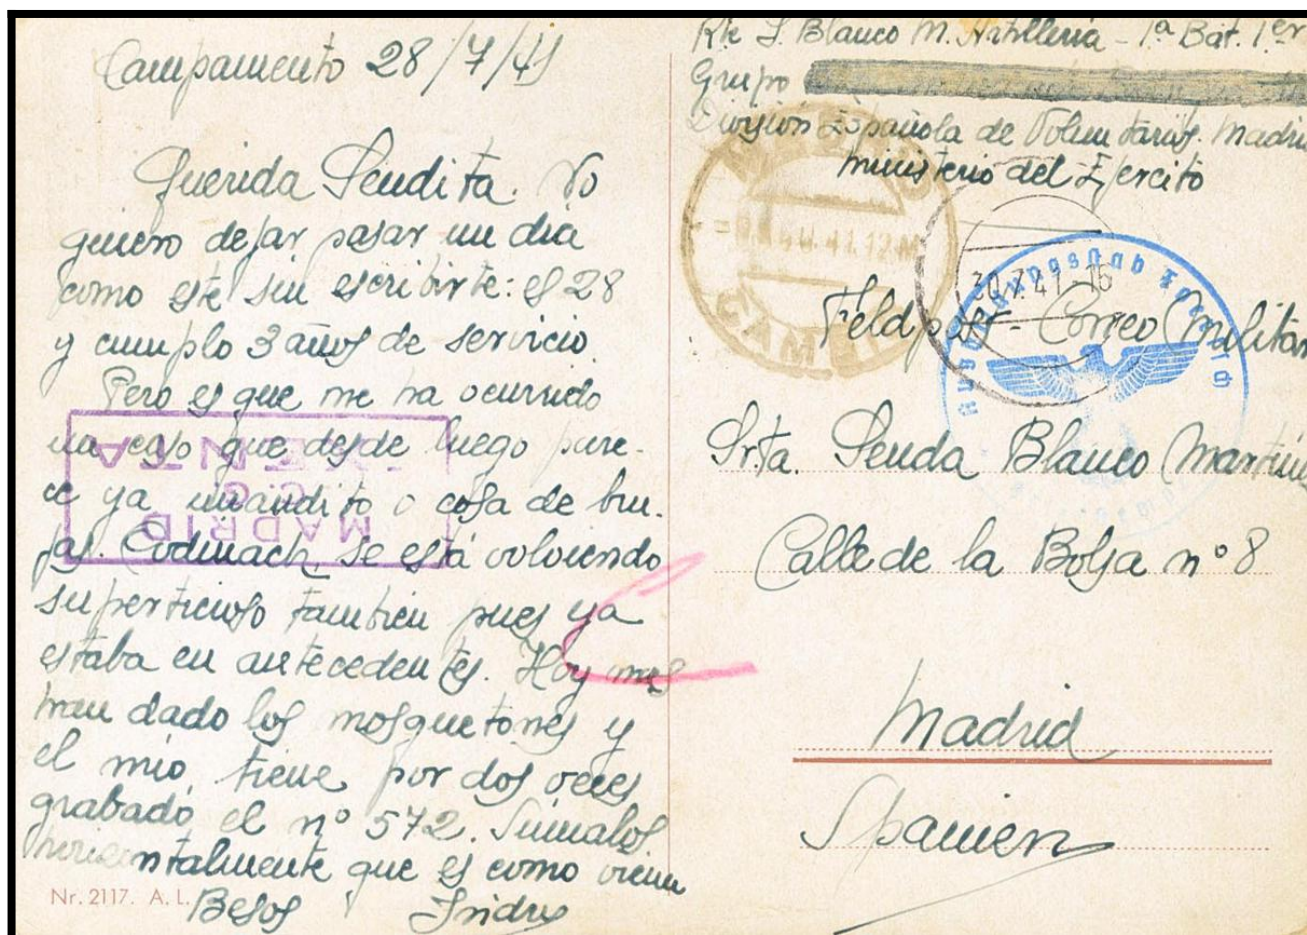 Campamento 28/7/41
Querida Sendita. No
quiero dejar pasar un dia
como este sin escribirte: es 28
y cumplo 3 años de servicio.
Pero es que me ha ocurrido
un caso que desde luego pare-
ce ya inaudito o cosa de bru-
jas. Codinach se está volviendo
superticioso tambien pues ya
estaba en antecedentes. Hoy nos
han dado los mosquetones y
el mio, tiene por dos veces
grabado el nº 572. Sumalos
horizontalmente que es como viene
Besos Isidro
Nr. 2117. A. L.
MADRID
C.G.
Rte I. Blanco M. Artilleria - 1ª Bat. 1er
Grupo
Division Española de Voluntarios. Madrid
Ministerio del Ejercito
30.7.41-16
Feldpost - Correo Militar
Srta. Senda Blanco Martine
Calle de la Bolsa nº 8
Madrid
Spanien